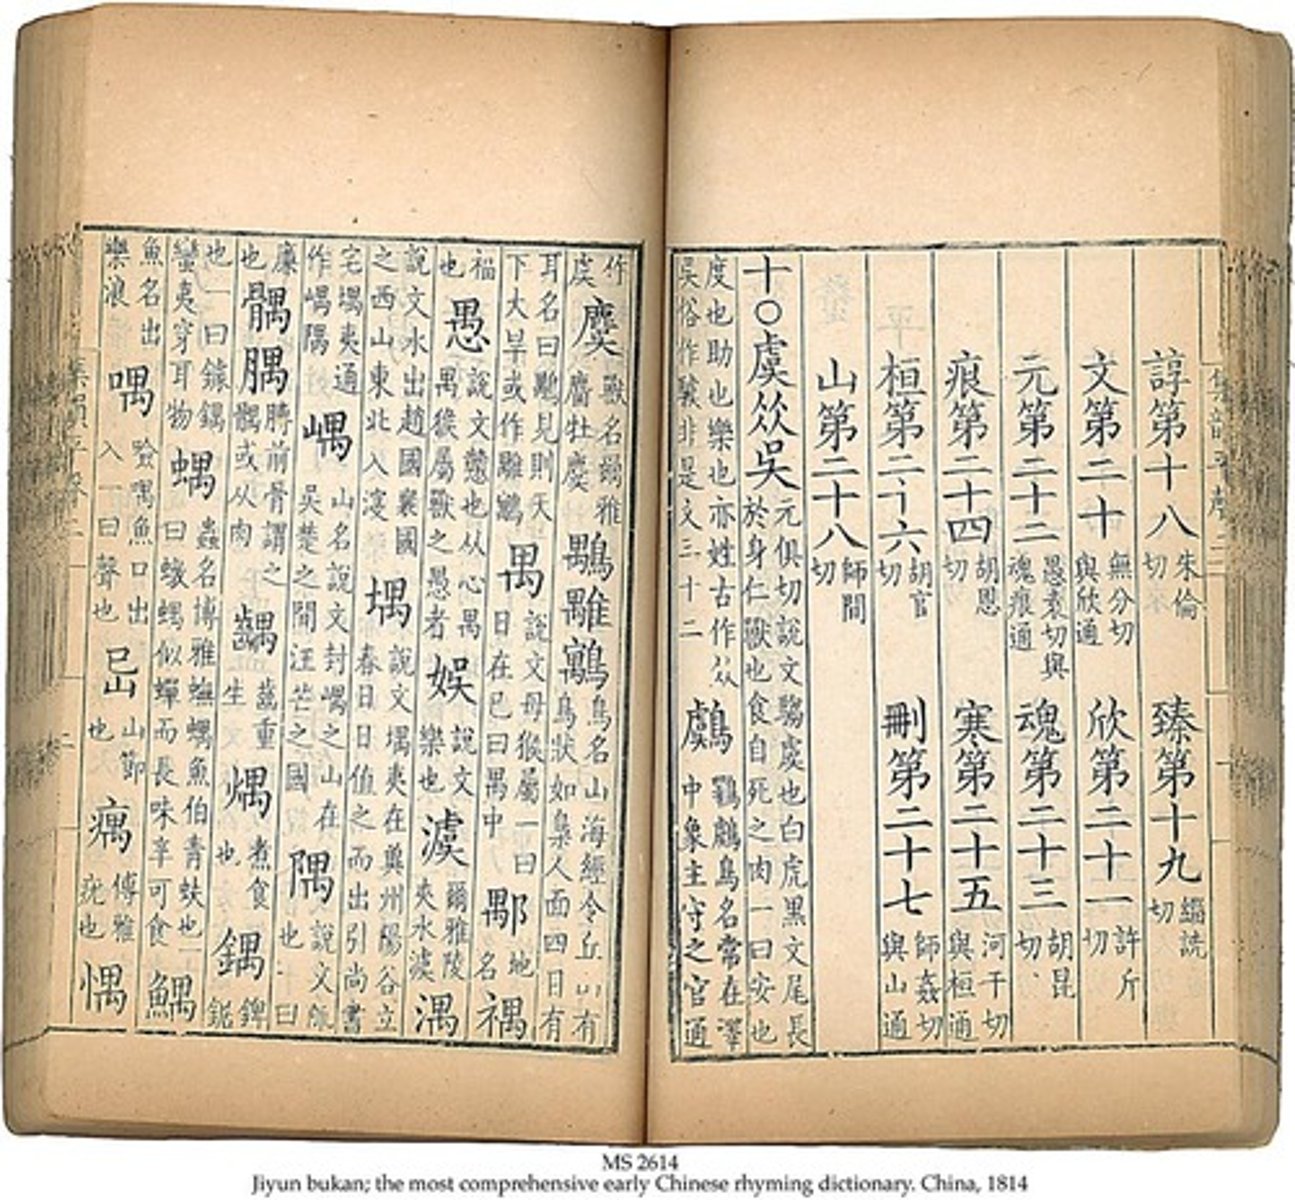 集韻平聲二
諄第十八 朱倫切 臻第十九 緇詵切
文第二十 無分切與欣通 欣第二十一 許斤切
元第二十二 愚袁切與魂痕通 魂第二十三 胡昆切
痕第二十四 胡恩切 寒第二十五 河干切與桓通
桓第二十六 胡官切 刪第二十七 師姦切與山通
山第二十八 師間切
十〇虞 吳 元俱切說文騶虞也白虎黑文尾長於身仁獸也食自死之肉一曰安也
度也助也樂也亦姓古作 吳俗作 非是文三十二 鸆 鸅鸆鳥名常在澤中象主守之官通
作虞 麌 獸名爾雅麕牡麌 鳥名山海經令丘山有鳥狀如梟人面四目有
耳名曰 見則天下大旱或作 禺 說文母猴屬一曰日在巳曰禺中 鄅 地名 禑
福也 愚 說文戇也从心禺禺猴屬獸之愚者 娛 說文樂也 澞 爾雅陵夾水澞 湡
說文水出趙國襄國之西山東北入 堣 說文堣夷在冀州陽谷立春日日值之而出引尚書
宅堣夷通作嵎隅 嵎 山名說文封嵎之山在吳楚之間汪芒之國 隅 說文陬也一曰
廉也 髃腢 髆前骨謂之髃或从肉 齵 齒重生 煮食也 鍝 錍鈮
也一曰鐻鍝蠻夷穿耳物 蝺 蟲名博雅蟱蝺魚伯青蚨也一曰 蝺似蟬而長味辛可食 鰅
魚名出樂浪 喁 噞喁魚口出入一曰聲也 山節也 博雅疣也
集韻平聲二
MS 2614
Jiyun bukan; the most comprehensive early Chinese rhyming dictionary. China, 1814